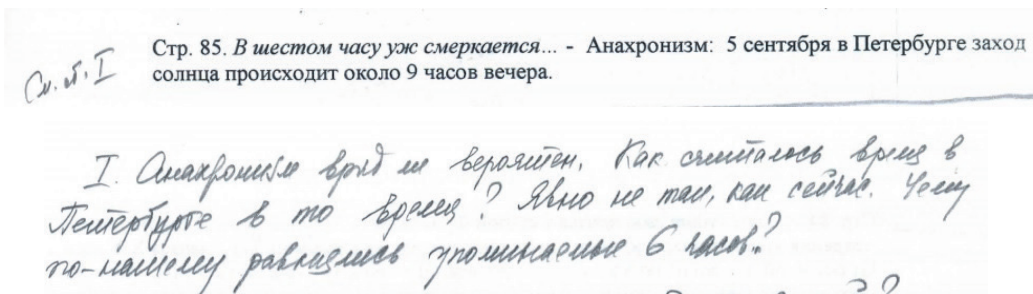 Стр. 85. В шестом часу уж смеркается... - Анахронизм: 5 сентября в Петербурге заход
См. п. I
солнца происходит около 9 часов вечера.
I. Анахронизм вряд ли вероятен. Как считалось время в
Петербурге в то время? Явно не так, как сейчас. Чему
по-нашему равнялись упоминаемые 6 часов?